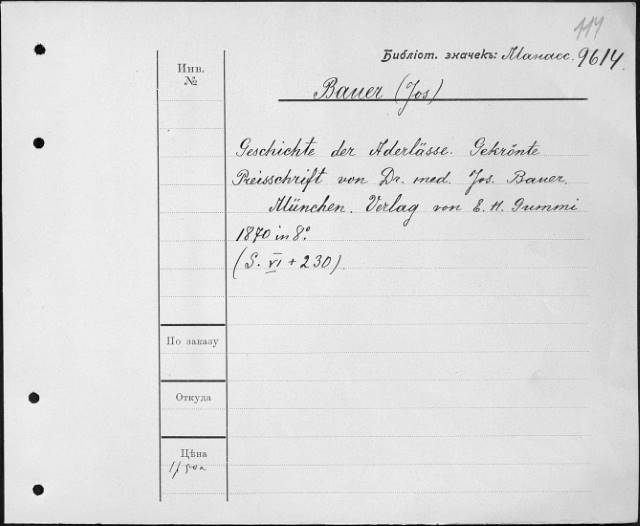 114
Библіот. значекъ: Манасс. 9614.
Инв.
№
Bauer (Jos)
Geschichte der Aderlässe. Gekrönte
Preisschrift von Dr. med. Jos. Bauer.
München. Verlag von E. H. Gummi
1870 in 8°.
(S. VI + 230).
По заказу
Откуда
Цѣна